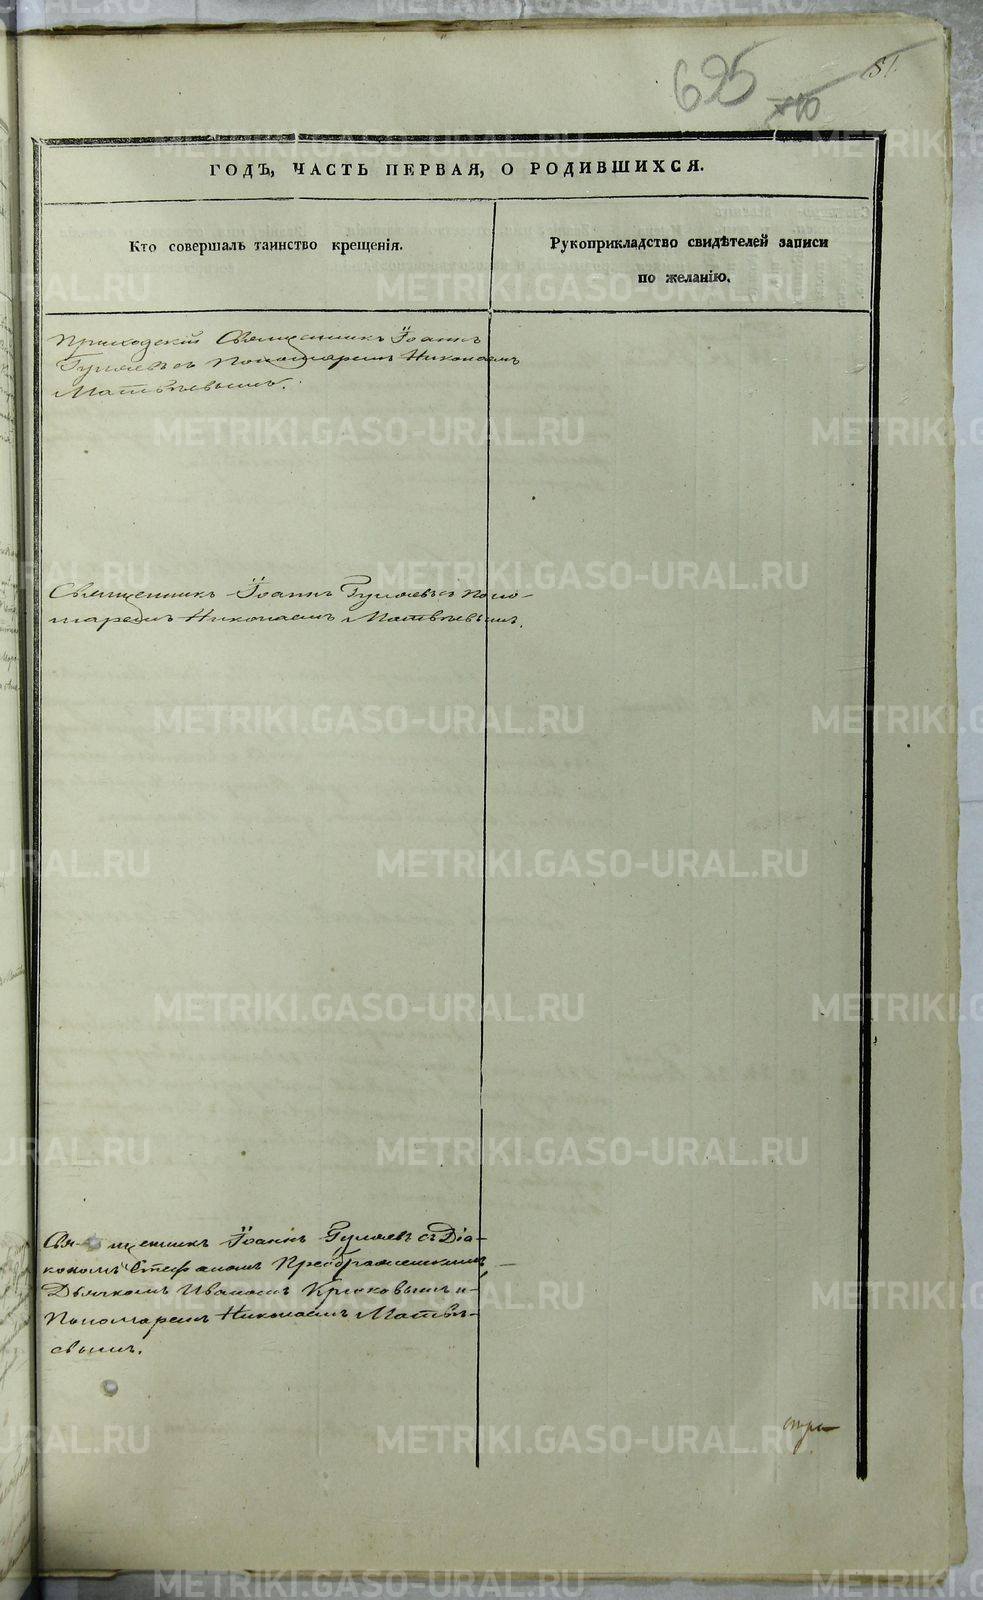 625
51.
ГОДЪ, ЧАСТЬ ПЕРВАЯ, О РОДИВШИХСЯ.
Кто совершалъ таинство крещенія.
Рукоприкладство свидѣтелей записи
по желанію.
Приходскій Священникъ Іоаннъ
Гуляевъ съ Пономаремъ Николаемъ
Матвѣевымъ.
Священникъ Іоаннъ Гуляевъ съ Поно-
маремъ Николаемъ Матвѣевымъ.
Священникъ Іоаннъ Гуляевъ съ Діа-
кономъ Стефаномъ Преображенскимъ
Дьячкомъ Иваномъ Крюковымъ и
Пономаремъ Николаемъ Матвѣ-
евымъ.
METRIKI.GASO-URAL.RU